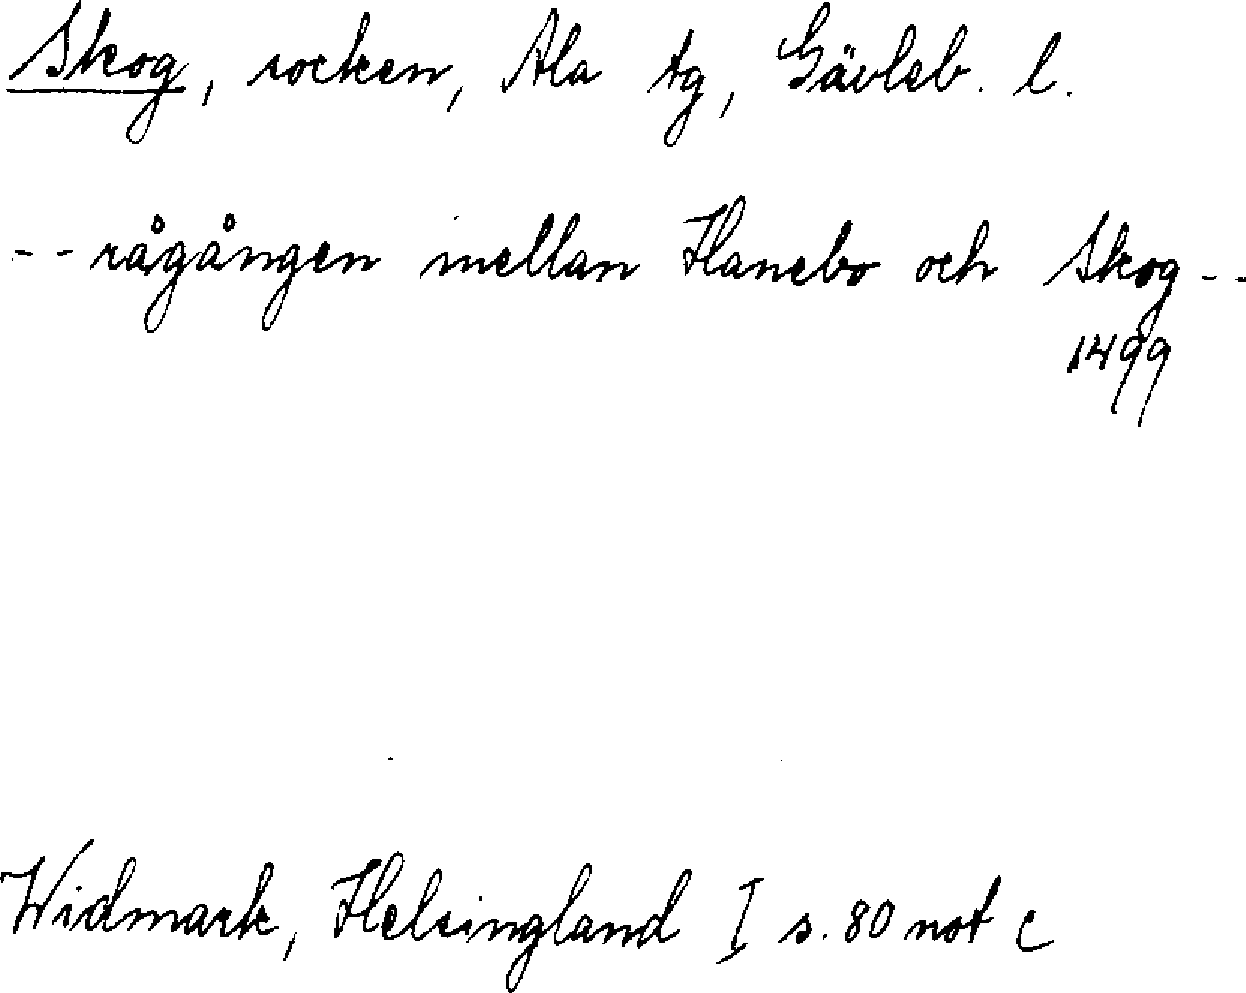 Skog, socken, Ala tg, Gävleb. l.
-- rågången mellan Hanebo och Skog --
1499
Widmark, Helsingland I s. 80 not c